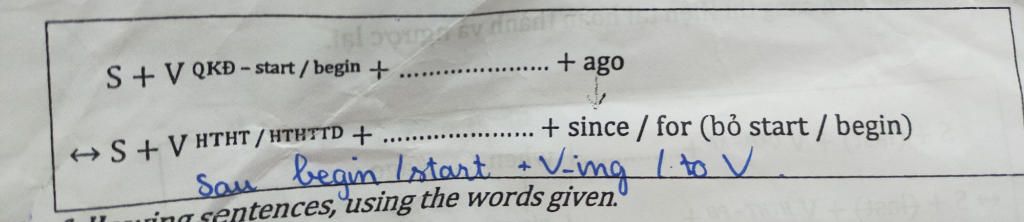 S + V QKĐ – start / begin + ........................ + ago
↔ S + V HTHT / HTHTTD + ........................ + since / for (bỏ start / begin)
Sau begin / start + V-ing / to V.
sentences, using the words given.